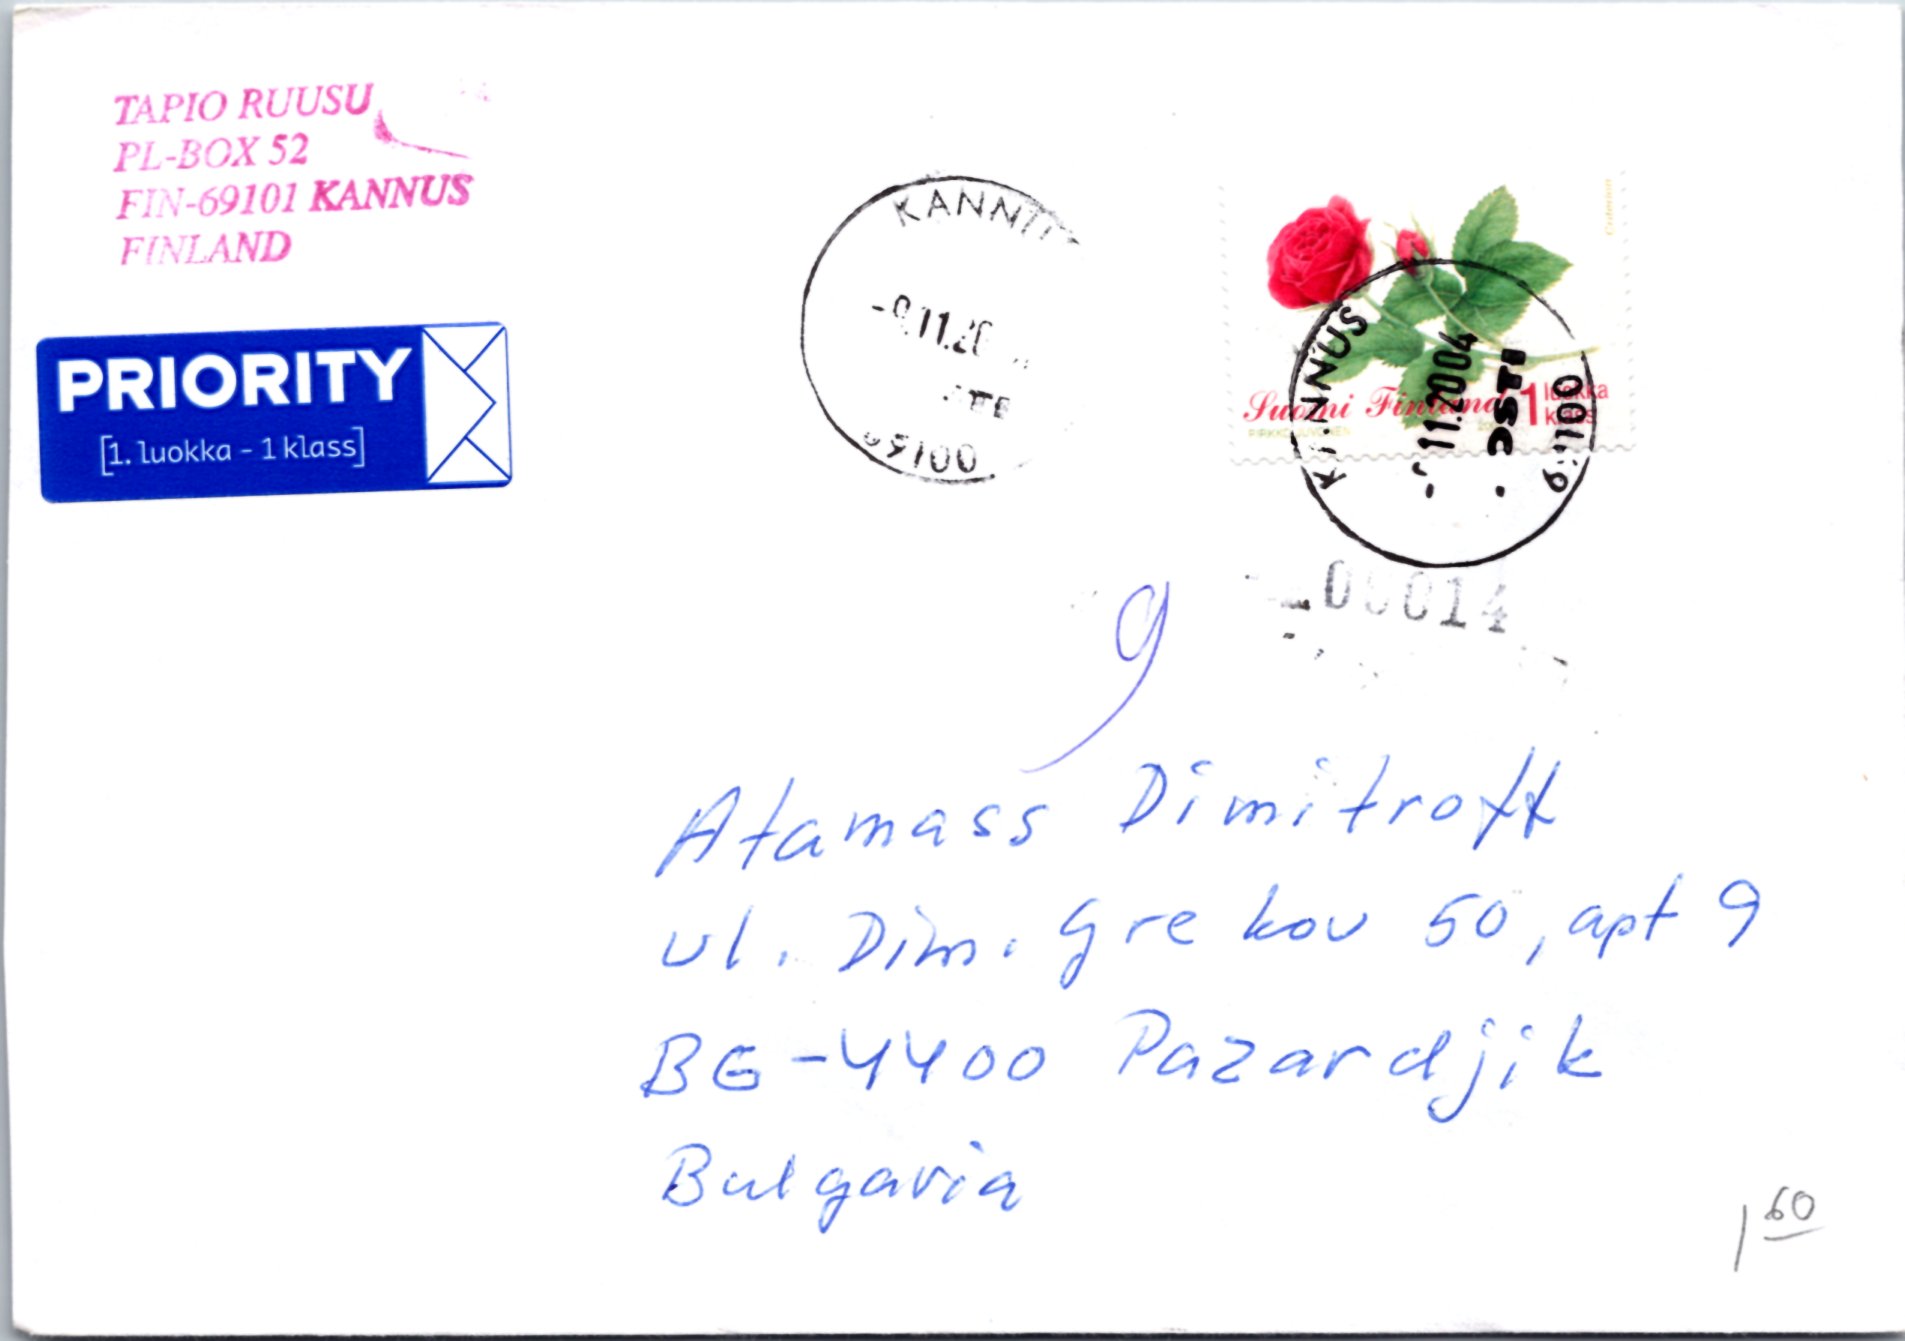 TAPIO RUUSU
PL-BOX 52
FIN-69101 KANNUS
FINLAND
PRIORITY
[1. luokka - 1 klass]
KANNU
-9.11.20
69100
Suomi Finland 1 luokka
klass
KANNUS
11.2004
69100
00014
9
Atamass Dimitroff
ul. Dim. Grekov 50, apt 9
BG-4400 Pazardjik
Bulgaria
1 60